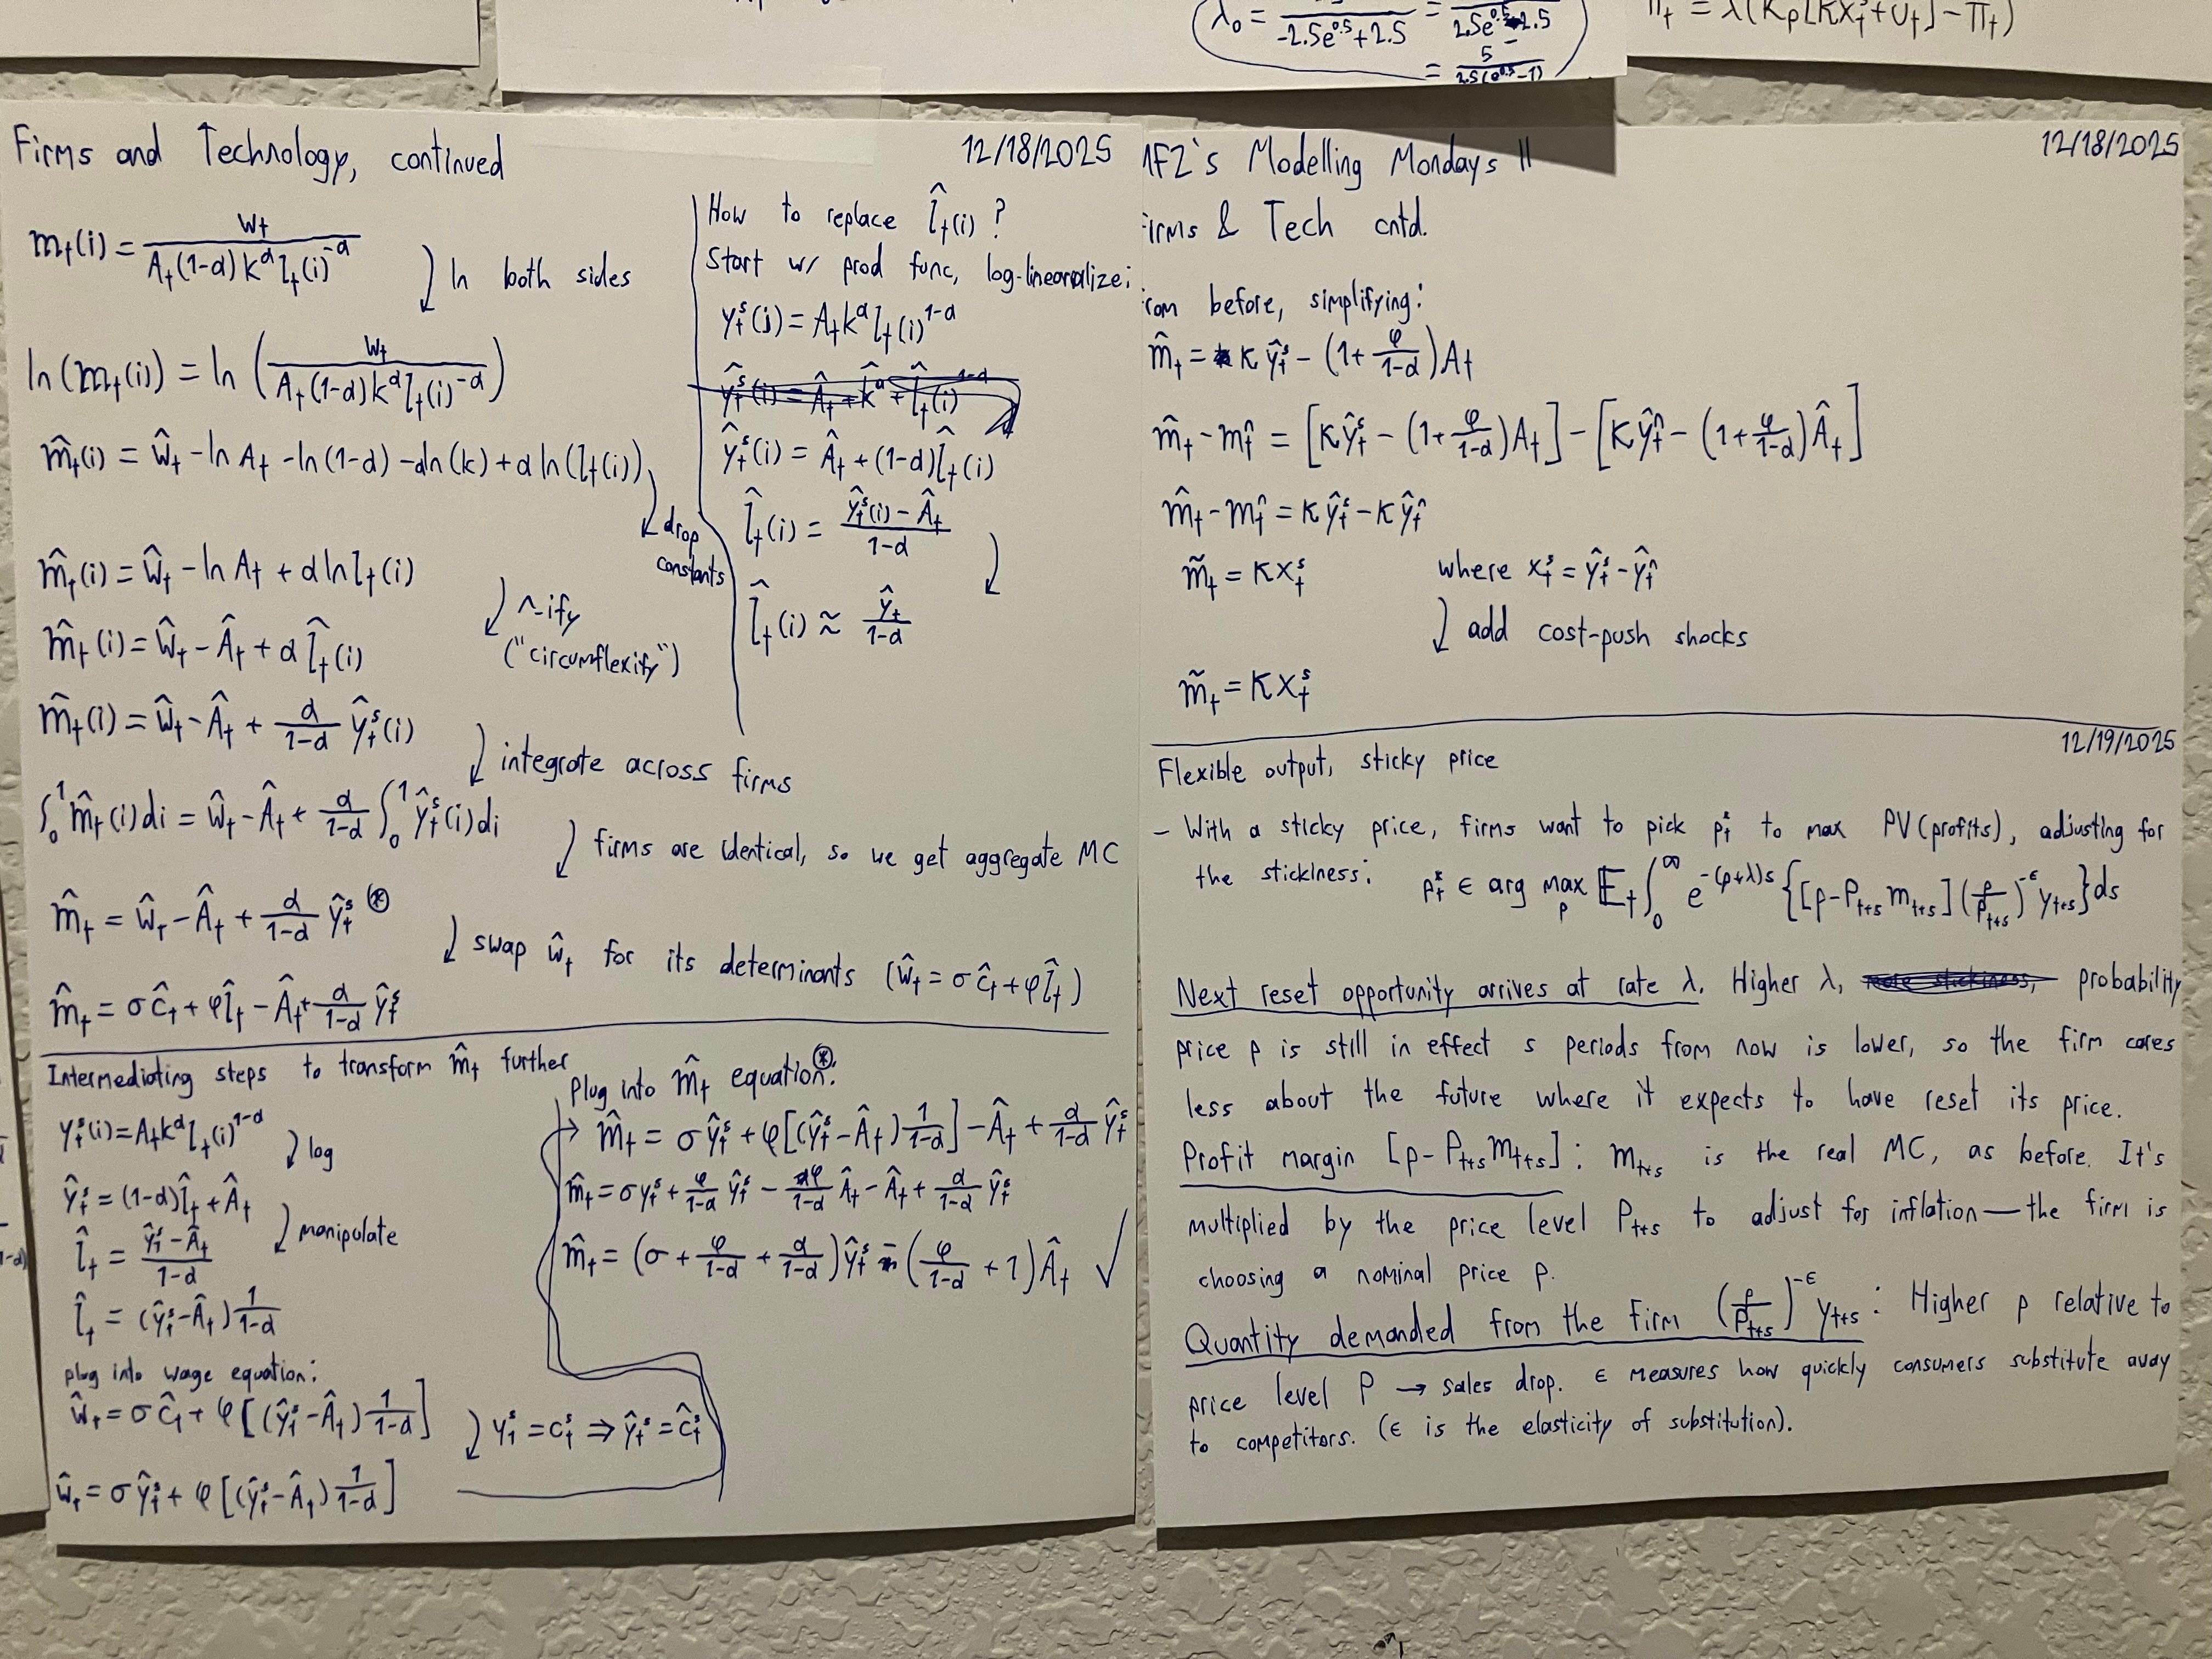 λ₀ = 5/(-2.5e^0.5+2.5) = 5/(2.5e^0.5-2.5)
= 5/(2.5(e^0.5-1))
= λ(κ_p[κx_t^s+υ_t]-π_t)
Firms and Technology, continued
12/18/2025
m_t(i) = w_t/(A_t(1-α)k^α l_t(i)^-α)
↓ ln both sides
ln(m_t(i)) = ln(w_t/(A_t(1-α)k^α l_t(i)^-α))
m̂_t(i) = ŵ_t - ln A_t - ln(1-α) - αln(k) + α ln(l_t(i))
↓ drop
constants
m̂_t(i) = ŵ_t - ln A_t + α ln l_t(i)
↓ ^-ify
("circumflexify")
m̂_t(i) = ŵ_t - Â_t + α l̂_t(i)
m̂_t(i) = ŵ_t - Â_t + α/(1-α) ŷ_t^s(i)
↓ integrate across firms
∫₀¹ m̂_t(i)di = ŵ_t - Â_t + α/(1-α) ∫₀¹ ŷ_t^s(i)di
↓ firms are identical, so we get aggregate MC
m̂_t = ŵ_t - Â_t + α/(1-α) ŷ_t^s ⊛
↓ swap ŵ_t for its determinants (ŵ_t = σĉ_t + φl̂_t)
m̂_t = σĉ_t + φl̂_t - Â_t + α/(1-α) ŷ_t^s
How to replace l̂_t(i)?
Start w/ prod func, log-linearalize:
y_t^s(i) = A_t k^α l_t(i)^1-α
ŷ_t^s(i) = Â_t + k̂^α + l̂_t(i)^1-α
ŷ_t^s(i) = Â_t + (1-α)l̂_t(i)
l̂_t(i) = (ŷ_t^s(i) - Â_t)/(1-α)
↓
l̂_t(i) ≈ ŷ_t/(1-α)
Intermediating steps to transform m̂_t further
y_t^s(i) = A_t k^α l_t(i)^1-α
↓ log
ŷ_t^s = (1-α)l̂_t + Â_t
↓ manipulate
l̂_t = (ŷ_t^s - Â_t)/(1-α)
l̂_t = (ŷ_t^s - Â_t) 1/(1-α)
plug into wage equation:
ŵ_t = σĉ_t + φ[(ŷ_t^s - Â_t) 1/(1-α)]
↓ y_t^s = c_t^s ⇒ ŷ_t^s = ĉ_t^s
ŵ_t = σŷ_t^s + φ[(ŷ_t^s - Â_t) 1/(1-α)]
plug into m̂_t equation⊛:
→ m̂_t = σŷ_t^s + φ[(ŷ_t^s - Â_t) 1/(1-α)] - Â_t + α/(1-α) ŷ_t^s
m̂_t = σy_t^s + φ/(1-α) ŷ_t^s - φ/(1-α) Â_t - Â_t + α/(1-α) ŷ_t^s
m̂_t = (σ + φ/(1-α) + α/(1-α))ŷ_t^s - (φ/(1-α) + 1)Â_t ✓
MFZ's Modelling Mondays II
12/18/2025
Firms & Tech cntd.
From before, simplifying:
m̂_t = κŷ_t^s - (1+φ/(1-α))A_t
m̂_t - m_t^n = [κŷ_t^s - (1+φ/(1-α))A_t] - [κŷ_t^n - (1+φ/(1-α))Â_t]
m̂_t - m_t^n = κŷ_t^s - κŷ_t^n
m̃_t = κx_t^s where x_t^s = ŷ_t^s - ŷ_t^n
↓ add cost-push shocks
m̃_t = κx_t^s
12/19/2025
Flexible output, sticky price
- With a sticky price, firms want to pick p_t^* to max PV(profits), adjusting for
the stickiness: p_t^* ∈ arg max_p 𝔼_t ∫₀^∞ e^-(ρ+λ)s {[p-P_t+s m_t+s](p/P_t+s)^-ϵ y_t+s}ds
Next reset opportunity arrives at rate λ. Higher λ, more stickiness, probability
price p is still in effect s periods from now is lower, so the firm cares
less about the future where it expects to have reset its price.
Profit margin [p-P_t+s m_t+s]: m_t+s is the real MC, as before. It's
multiplied by the price level P_t+s to adjust for inflation—the firm is
choosing a nominal price p.
Quantity demanded from the firm (p/P_t+s)^-ϵ y_t+s: Higher p relative to
price level P → sales drop. ϵ measures how quickly consumers substitute away
to competitors. (ϵ is the elasticity of substitution).